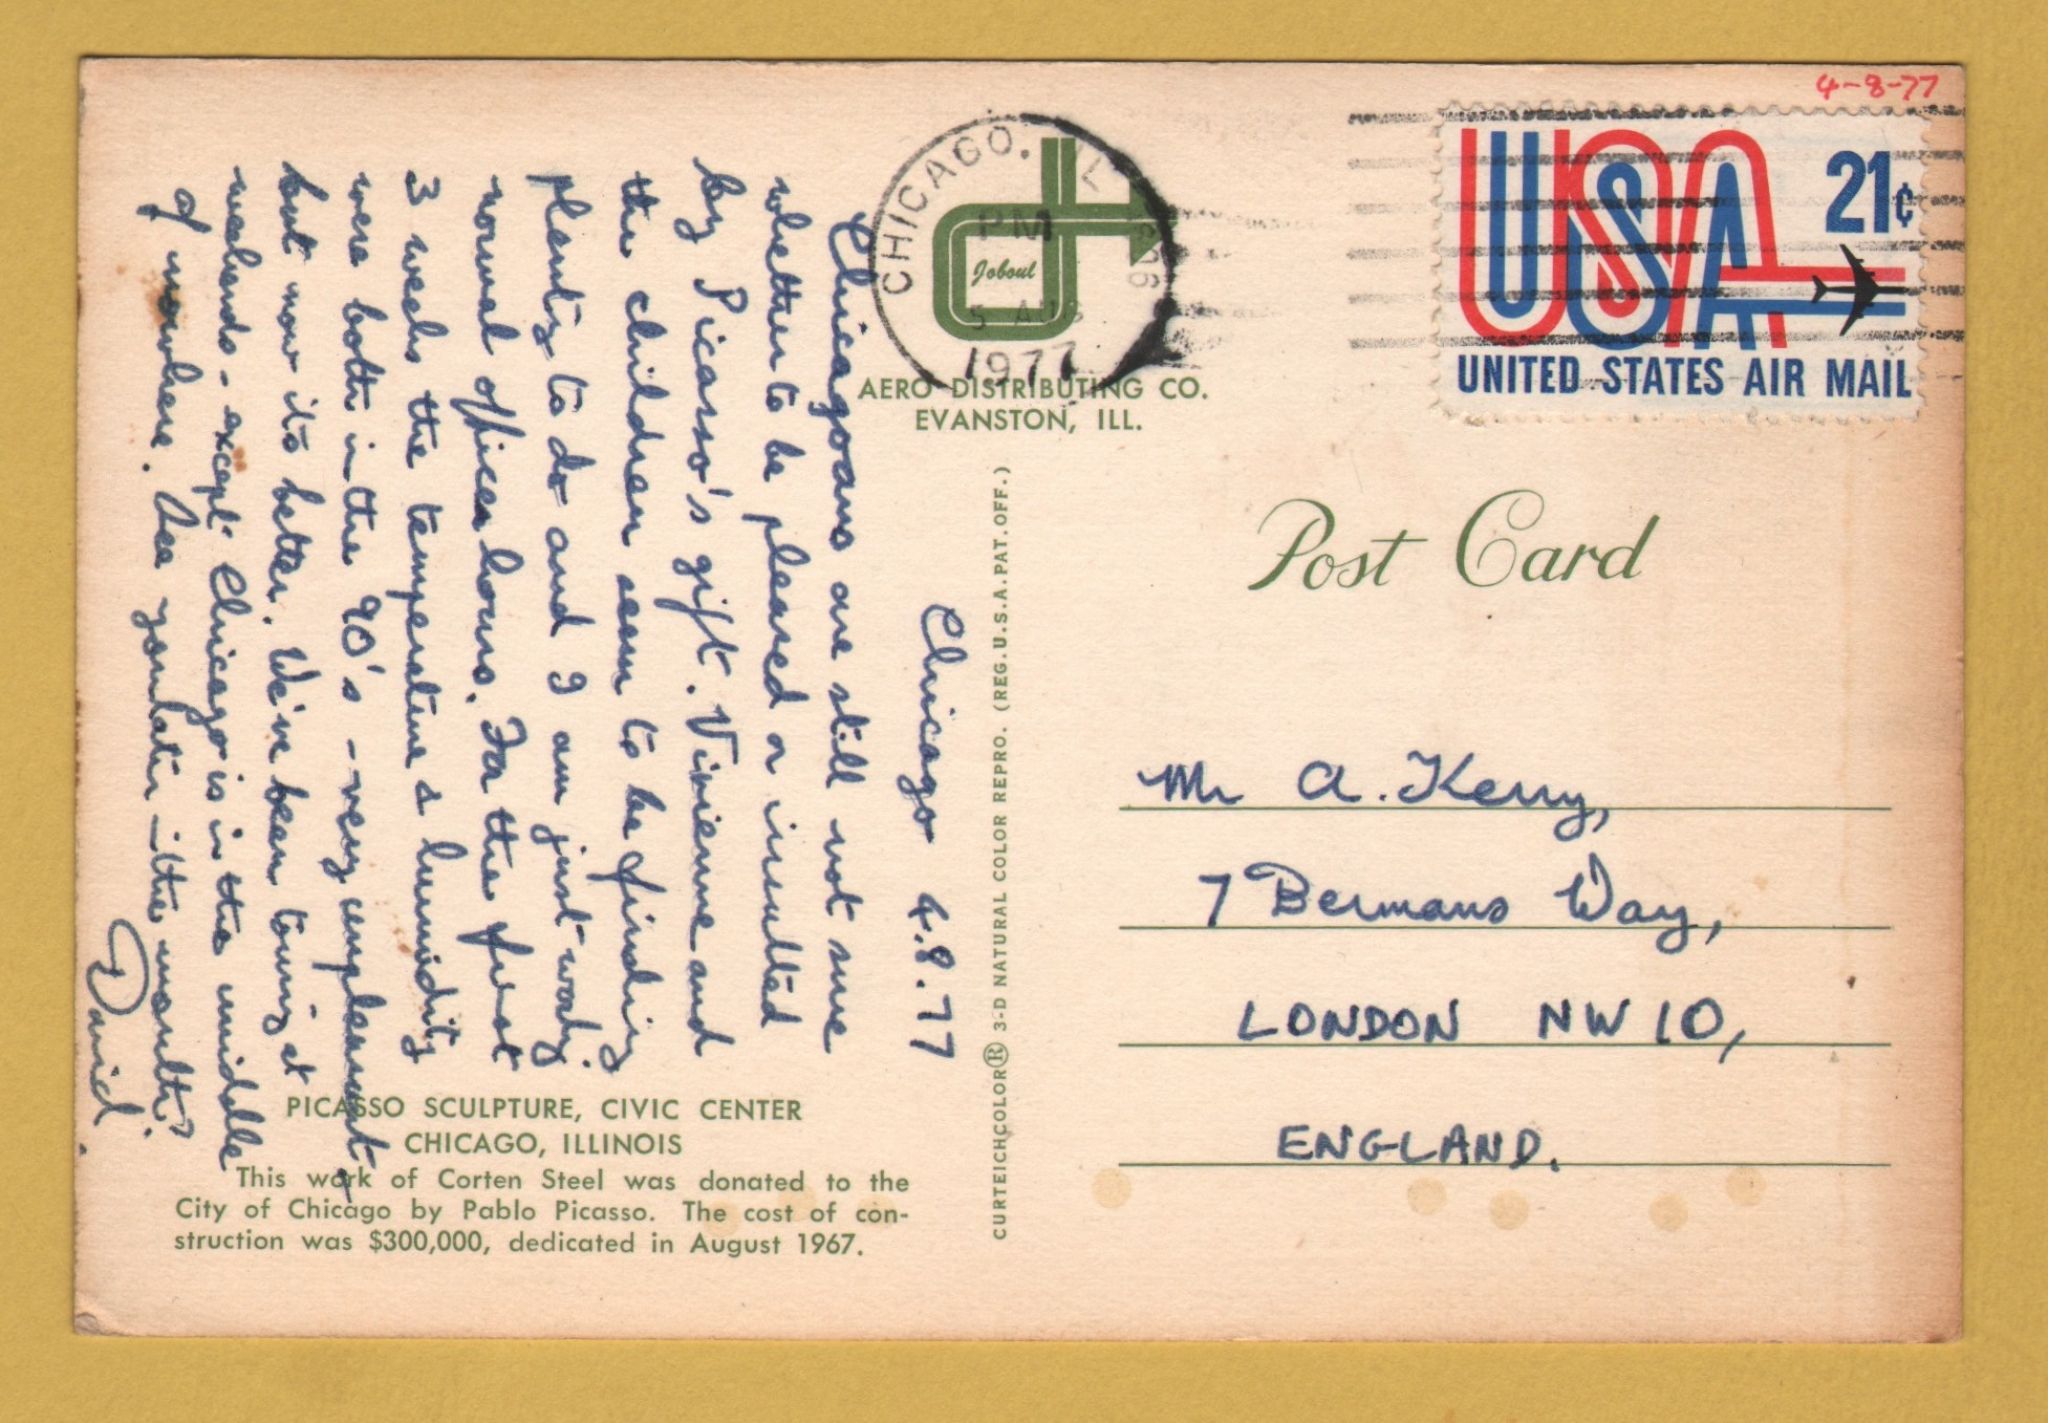 4-8-77
USA 21¢
UNITED STATES AIR MAIL
CHICAGO, IL 606
PM
5 AUG
1977
Joboul
AERO DISTRIBUTING CO.
EVANSTON, ILL.
Post Card
Chicago 4.8.77
Chicagoans are still not sure
whether to be pleased or insulted
by Picasso's gift. Vivienne and
the children seem to be finding
plenty to do and I am just working
normal office hours. For the first
3 weeks the temperature & humidity
were both in the 90's - very unpleasant -
but now its better. We've been touring at
weekends - except Chicago is in the middle
of nowhere. See you later in the month?
David.
Mr A. Kerry,
7 Bermans Way,
LONDON NW10,
ENGLAND.
CURTEICHCOLOR® 3-D NATURAL COLOR REPRO. (REG. U.S.A. PAT. OFF.)
PICASSO SCULPTURE, CIVIC CENTER
CHICAGO, ILLINOIS
This work of Corten Steel was donated to the
City of Chicago by Pablo Picasso. The cost of con-
struction was $300,000, dedicated in August 1967.